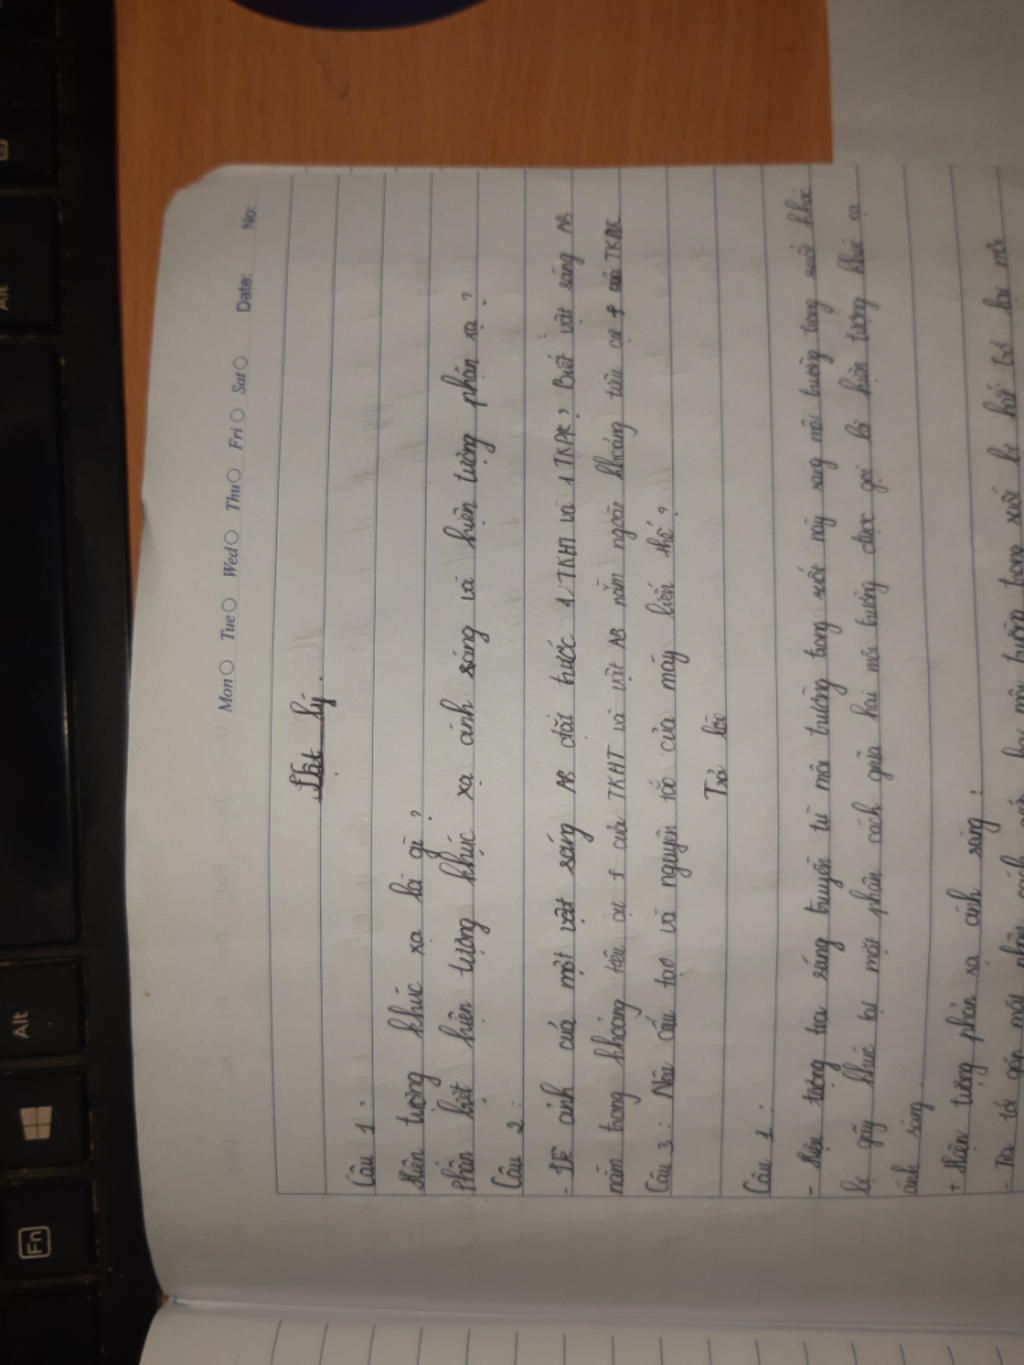 Mon Tue Wed Thu Fri Sat Date: No:
Vật lý.
Câu 1:
Hiện tượng khúc xạ là gì?
Phân biệt hiện tượng khúc xạ ánh sáng và hiện tượng phản xạ?
Câu 2:
- Vẽ ảnh của một vật sáng AB đặt trước 1 TKHT và 1 TKPK? Biết vật sáng AB
nằm trong khoảng tiêu cự f của TKHT và vật AB nằm ngoài khoảng tiêu cự f của TKPK
Câu 3: Nêu cấu tạo và nguyên tắc của máy biến thế?
Trả lời
Câu 1:
- Hiện tượng tia sáng truyền từ môi trường trong suốt này sang môi trường trong suốt khác
bị gãy khúc tại mặt phân cách giữa hai môi trường được gọi là hiện tượng khúc xạ
ánh sáng.
+ Hiện tượng phản xạ ánh sáng:
- Tia tới gặp mặt phân cách giữa hai môi trường trong suốt bị hắt trở lại môi
Alt
Alt
Fn